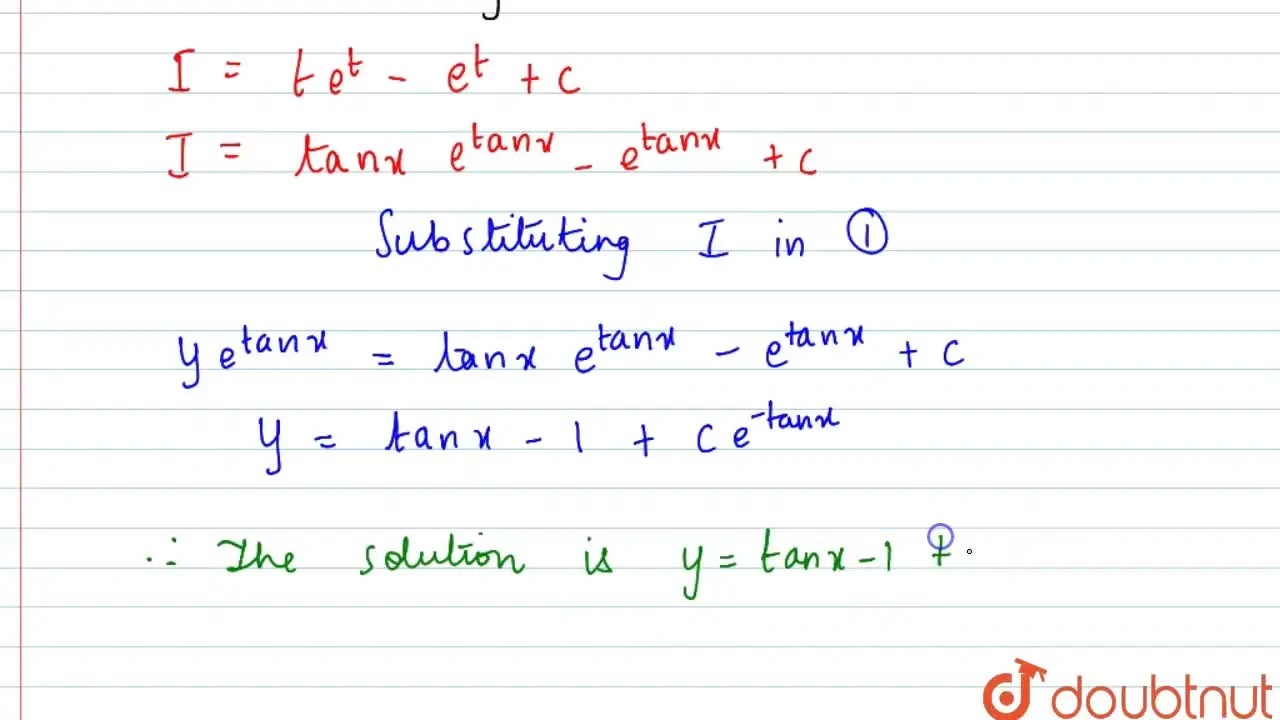 I = te^t - e^t + c
I = tanx e^tanx - e^tanx + c
Substituting I in ①
y e^tanx = tanx e^tanx - e^tanx + c
y = tanx - 1 + c e^-tanx
∴ The solution is y = tanx - 1 +
doubtnut